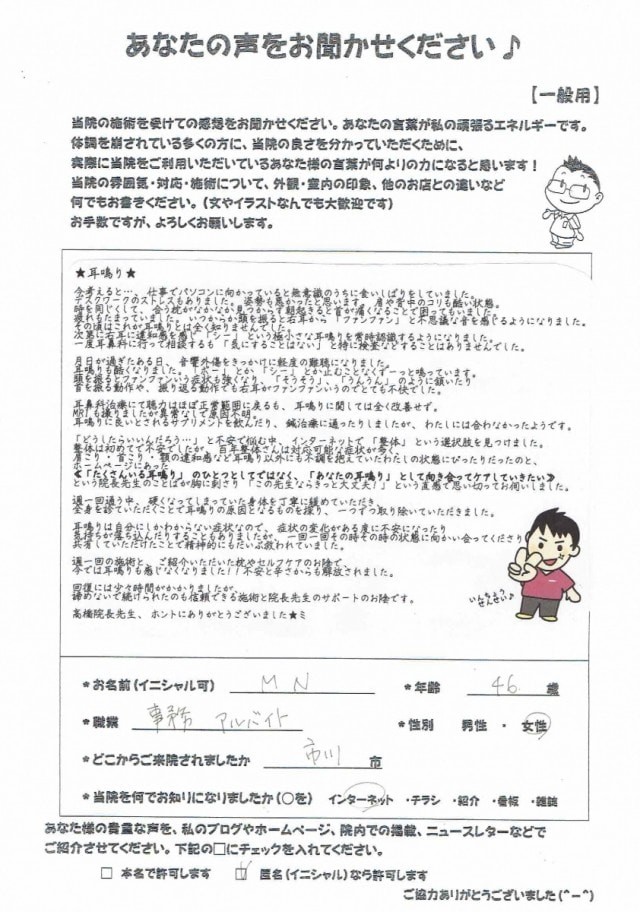 あなたの声をお聞かせください♪
【一般用】
当院の施術を受けての感想をお聞かせください。あなたの言葉が私の頑張るエネルギーです。
体調を崩されている多くの方に、当院の良さを分かっていただくために、
実際に当院をご利用いただいているあなた様の言葉が何よりの力になると思います！
当院の雰囲気・対応・施術について、外観・室内の印象、他のお店との違いなど
何でもお書きください。(文やイラストなんでも大歓迎です)
お手数ですが、よろしくお願いします。
★耳鳴り★
今考えると…、仕事でパソコンに向かっていると無意識のうちに食いしばりをしていました。
デスクワークのストレスもありました。姿勢も悪かったと思います。肩や背中のコリも酷い状態。
時を同じくして、合う枕がなかなか見つからず朝起きると首が痛くなることで困ってもいました。
疲れもたまっていました。いつからか頭を振ると右耳から「ファンファン」と不思議な音を感じるようになりました。
その頃はこれが耳鳴りとは全く知りませんでした。
次第に右耳に違和感を感じ「シー」という極小さな耳鳴りを常時認識するようになりました。
一度耳鼻科に行って相談するも「気にすることはない」と特に検査などすることはありませんでした。
月日が過ぎたある日、音響外傷をきっかけに軽度の難聴になりました。
耳鳴りも酷くなりました。「ボー」とか「シー」とか止むことなくずーっと鳴っています。
頭を振るとファンファンいう症状も強くなり、「そうそう」、「うんうん」のように頷いたり
首を振る動作や、振り返る動作でも右耳がファンファンいうのでとても不快でした。
耳鼻科治療にて聴力はほぼ正常範囲に戻るも、耳鳴りに関しては全く改善せず。
MRIも撮りましたが異常なしで原因不明。
耳鳴りに良いとされるサプリメントを飲んだり、鍼治療に通ったりしましたが、わたしには合わなかったようです。
「どうしたらいいんだろう…」と不安で悩む中、インターネットで「整体」という選択肢を見つけました。
整体は初めてで不安でしたが、百年整体さんは対応可能な症状が多く、
肩こり・首こり・顎の違和感など耳鳴り以外にも不調を抱えていたわたしの状態にぴったりだったのと、
ホームページにあった
≪「たくさんいる耳鳴り」のひとつとしてではなく、「あなたの耳鳴り」として向き合ってケアしていきたい≫
という院長先生のことばが胸に刺さり「この先生ならきっと大丈夫！」という直感で思い切ってお伺いしました。
週一回通う中、硬くなってしまっていた身体を丁寧に緩めていただき、
全身を診ていただくことで耳鳴りの原因となるものを探り、一つずつ取り除いていただきました。
耳鳴りは自分にしかわからない症状なので、症状の変化がある度に不安になったり
気持ちが落ち込んだりすることもありましたが、一回一回その時その時の状態に向かい合ってくださり
共有していただけたことで精神的にもだいぶ救われていました。
週一回の施術と、ご紹介いただいた枕やセルフケアのお陰で、
今では耳鳴りも感じなくなりました！不安と辛さからも解放されました。
回復には少々時間がかかりましたが、
諦めないで続けられたのも信頼できる施術と院長先生のサポートのお陰です。
高橋院長先生、ホントにありがとうございました★ミ
いんちょう
せんせい♪
*お名前(イニシャル可) M N *年齢 46 歳
*職業 事務 アルバイト *性別 男性 ・ 女性
*どこからご来院されましたか 市川 市
*当院を何でお知りになりましたか(○を) インターネット ・チラシ ・紹介 ・看板 ・雑誌
あなた様の貴重な声を、私のブログやホームページ、院内での掲載、ニュースレターなどで
ご紹介させてください。下記の□にチェックを入れてください。
□ 本名で許可します ☑ 匿名(イニシャル)なら許可します
ご協力ありがとうございました(^-^)